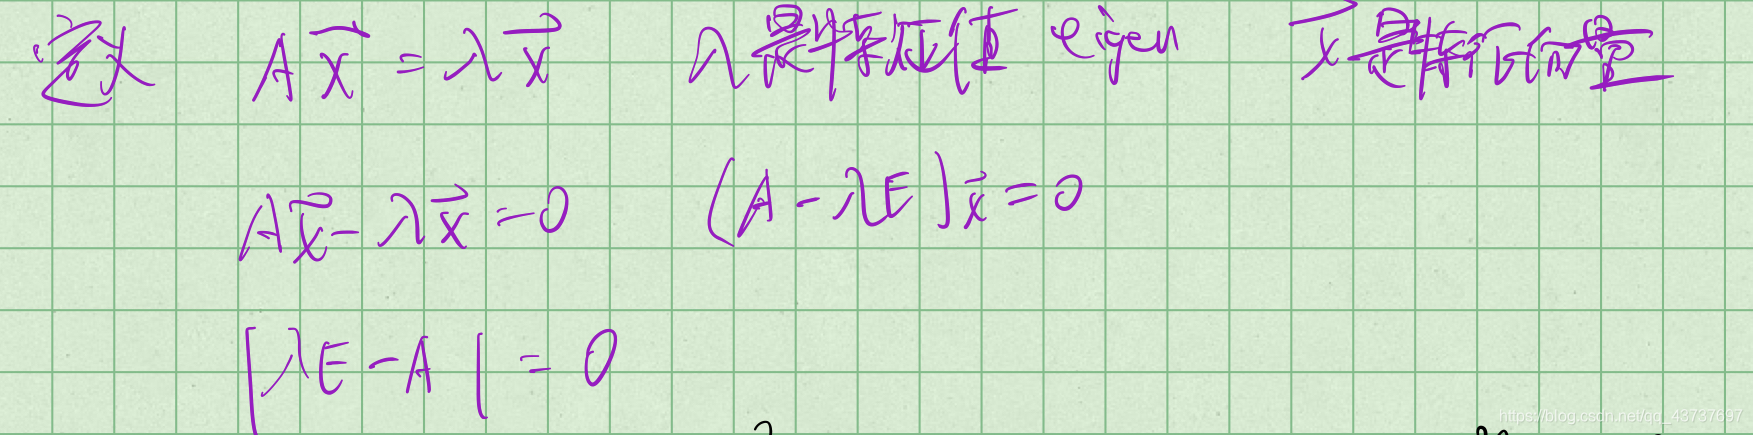 定义 A x⃗ = λ x⃗ λ是特征值 eigen x⃗ 是特征向量
A x⃗ - λ x⃗ = 0 (A - λE) x⃗ = 0
|λE - A| = 0
https://blog.csdn.net/qq_43737697